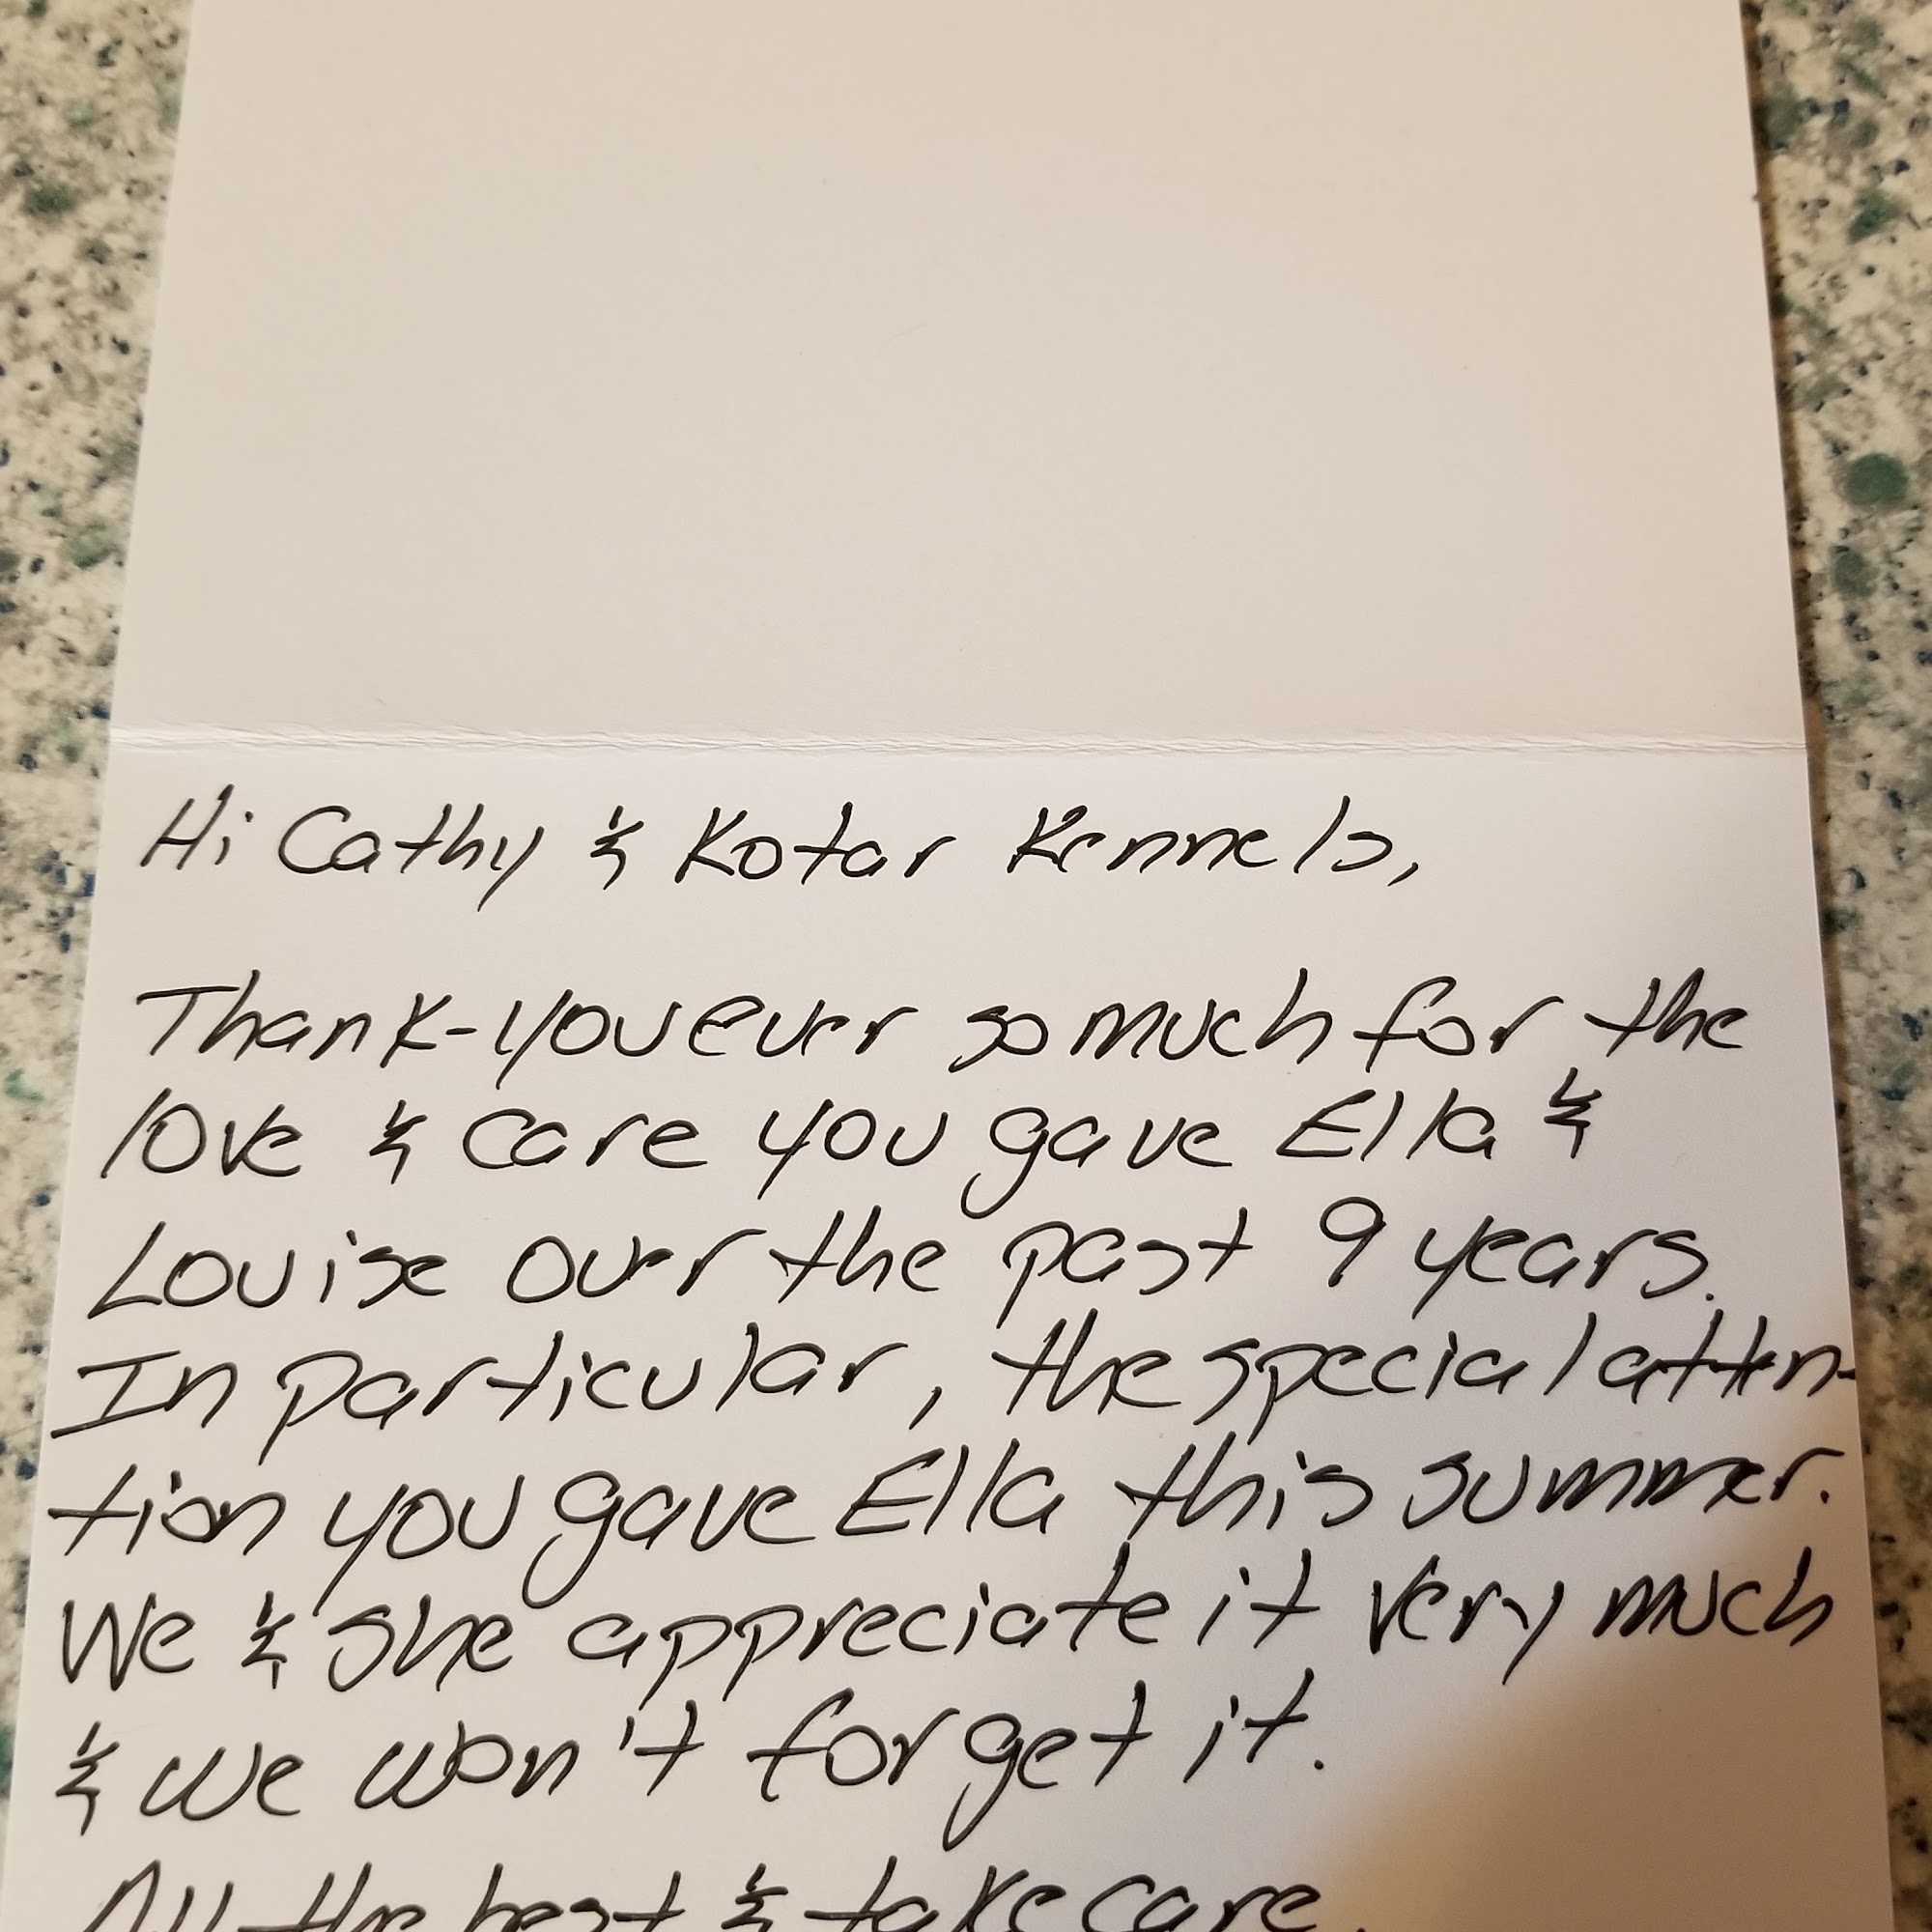 Hi Cathy & Kotar Kennels,
Thank-you ever so much for the
love & care you gave Ella &
Louise over the past 9 years.
In particular, the special atten-
tion you gave Ella this summer.
We & she appreciate it very much
& we won't forget it.
All the best & take care.